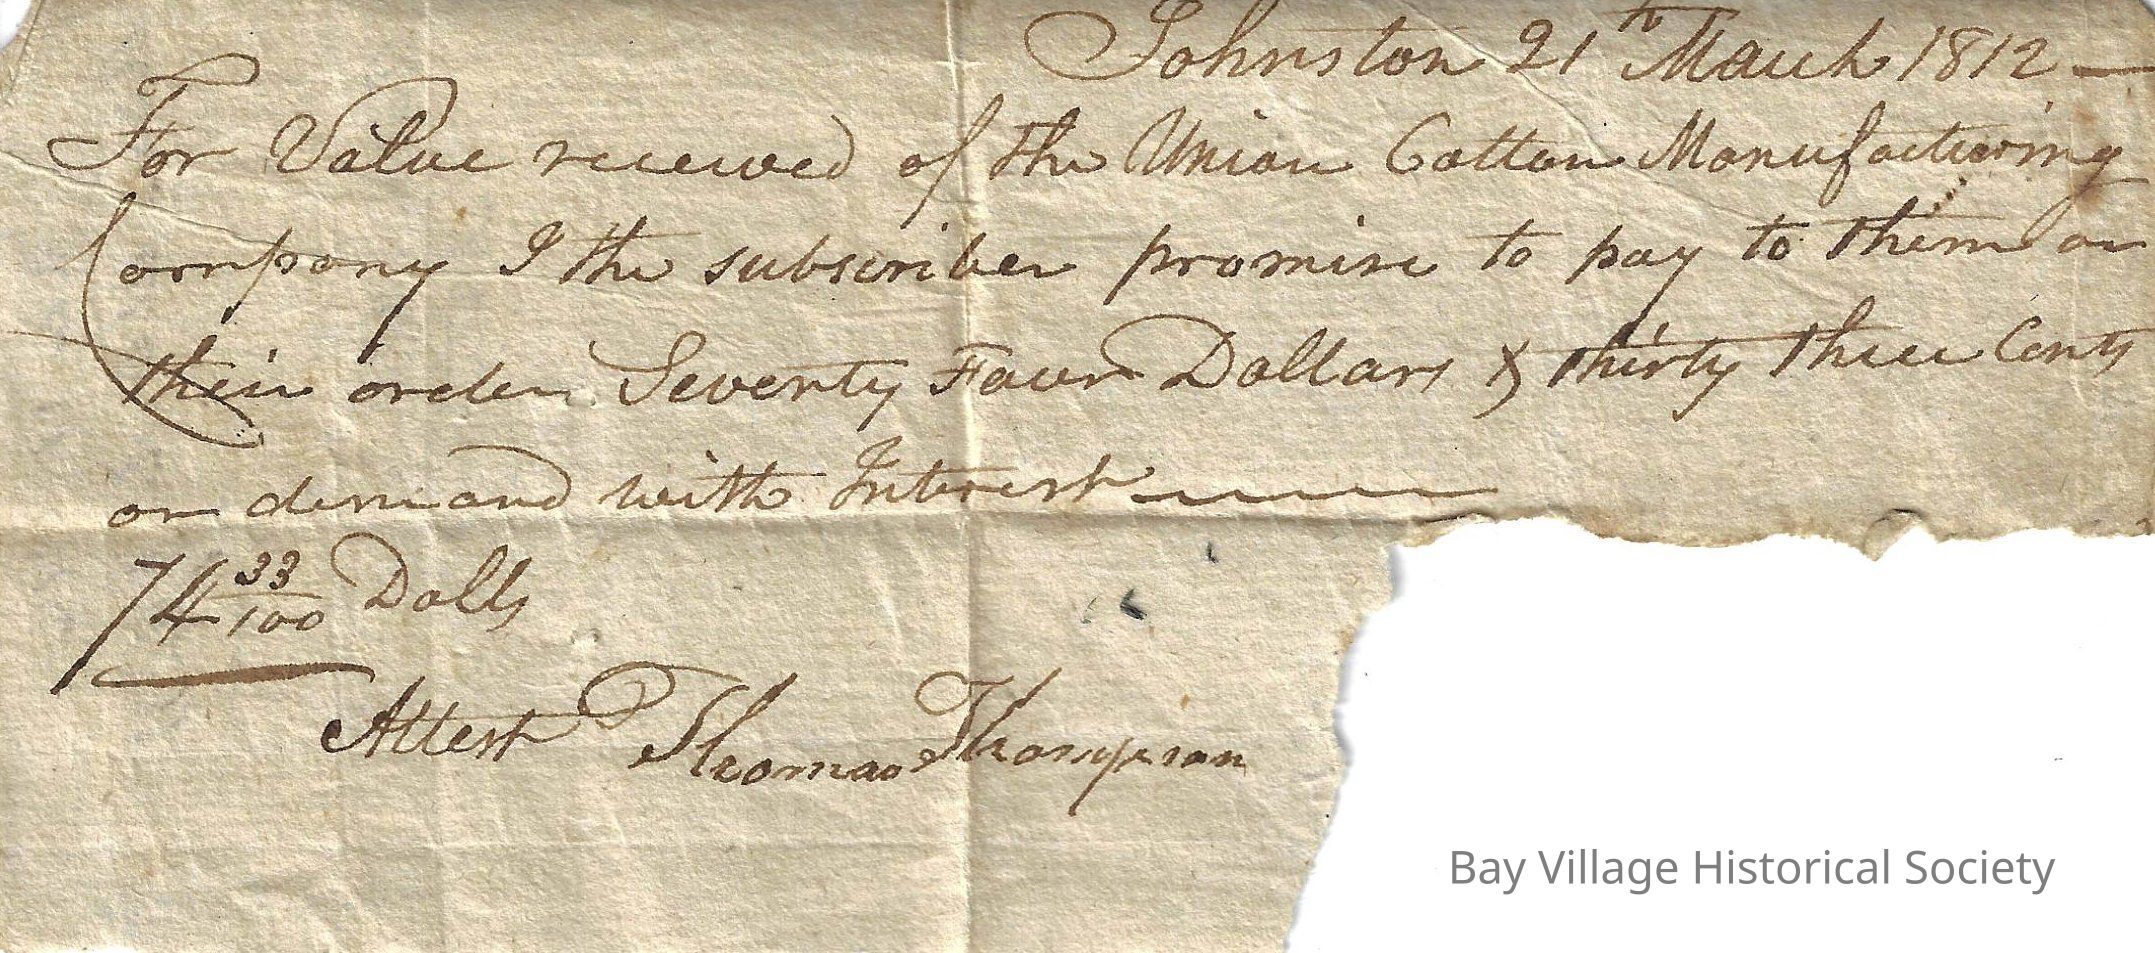 Johnston 21th March 1812 —
For Value received of the Union Cotton Manufactuoring
Company I the subscriber promise to pay to them or
their order Seventy Four Dollars & thirty three Cents
on demand with Interest
74 33/100 Dolls
Attest Thomas Thompson
Bay Village Historical Society